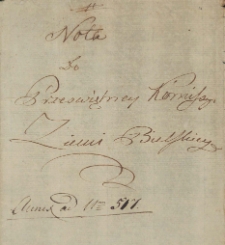 Nota
Do
Prześwietney Komissyi
Ziemi Bielskiey
Annex ad Nro 517